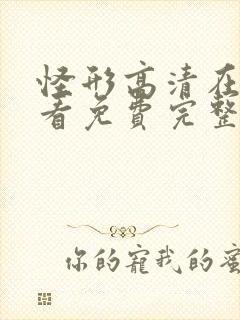 怪形高清在
看免费完整
你的寵我的蜜